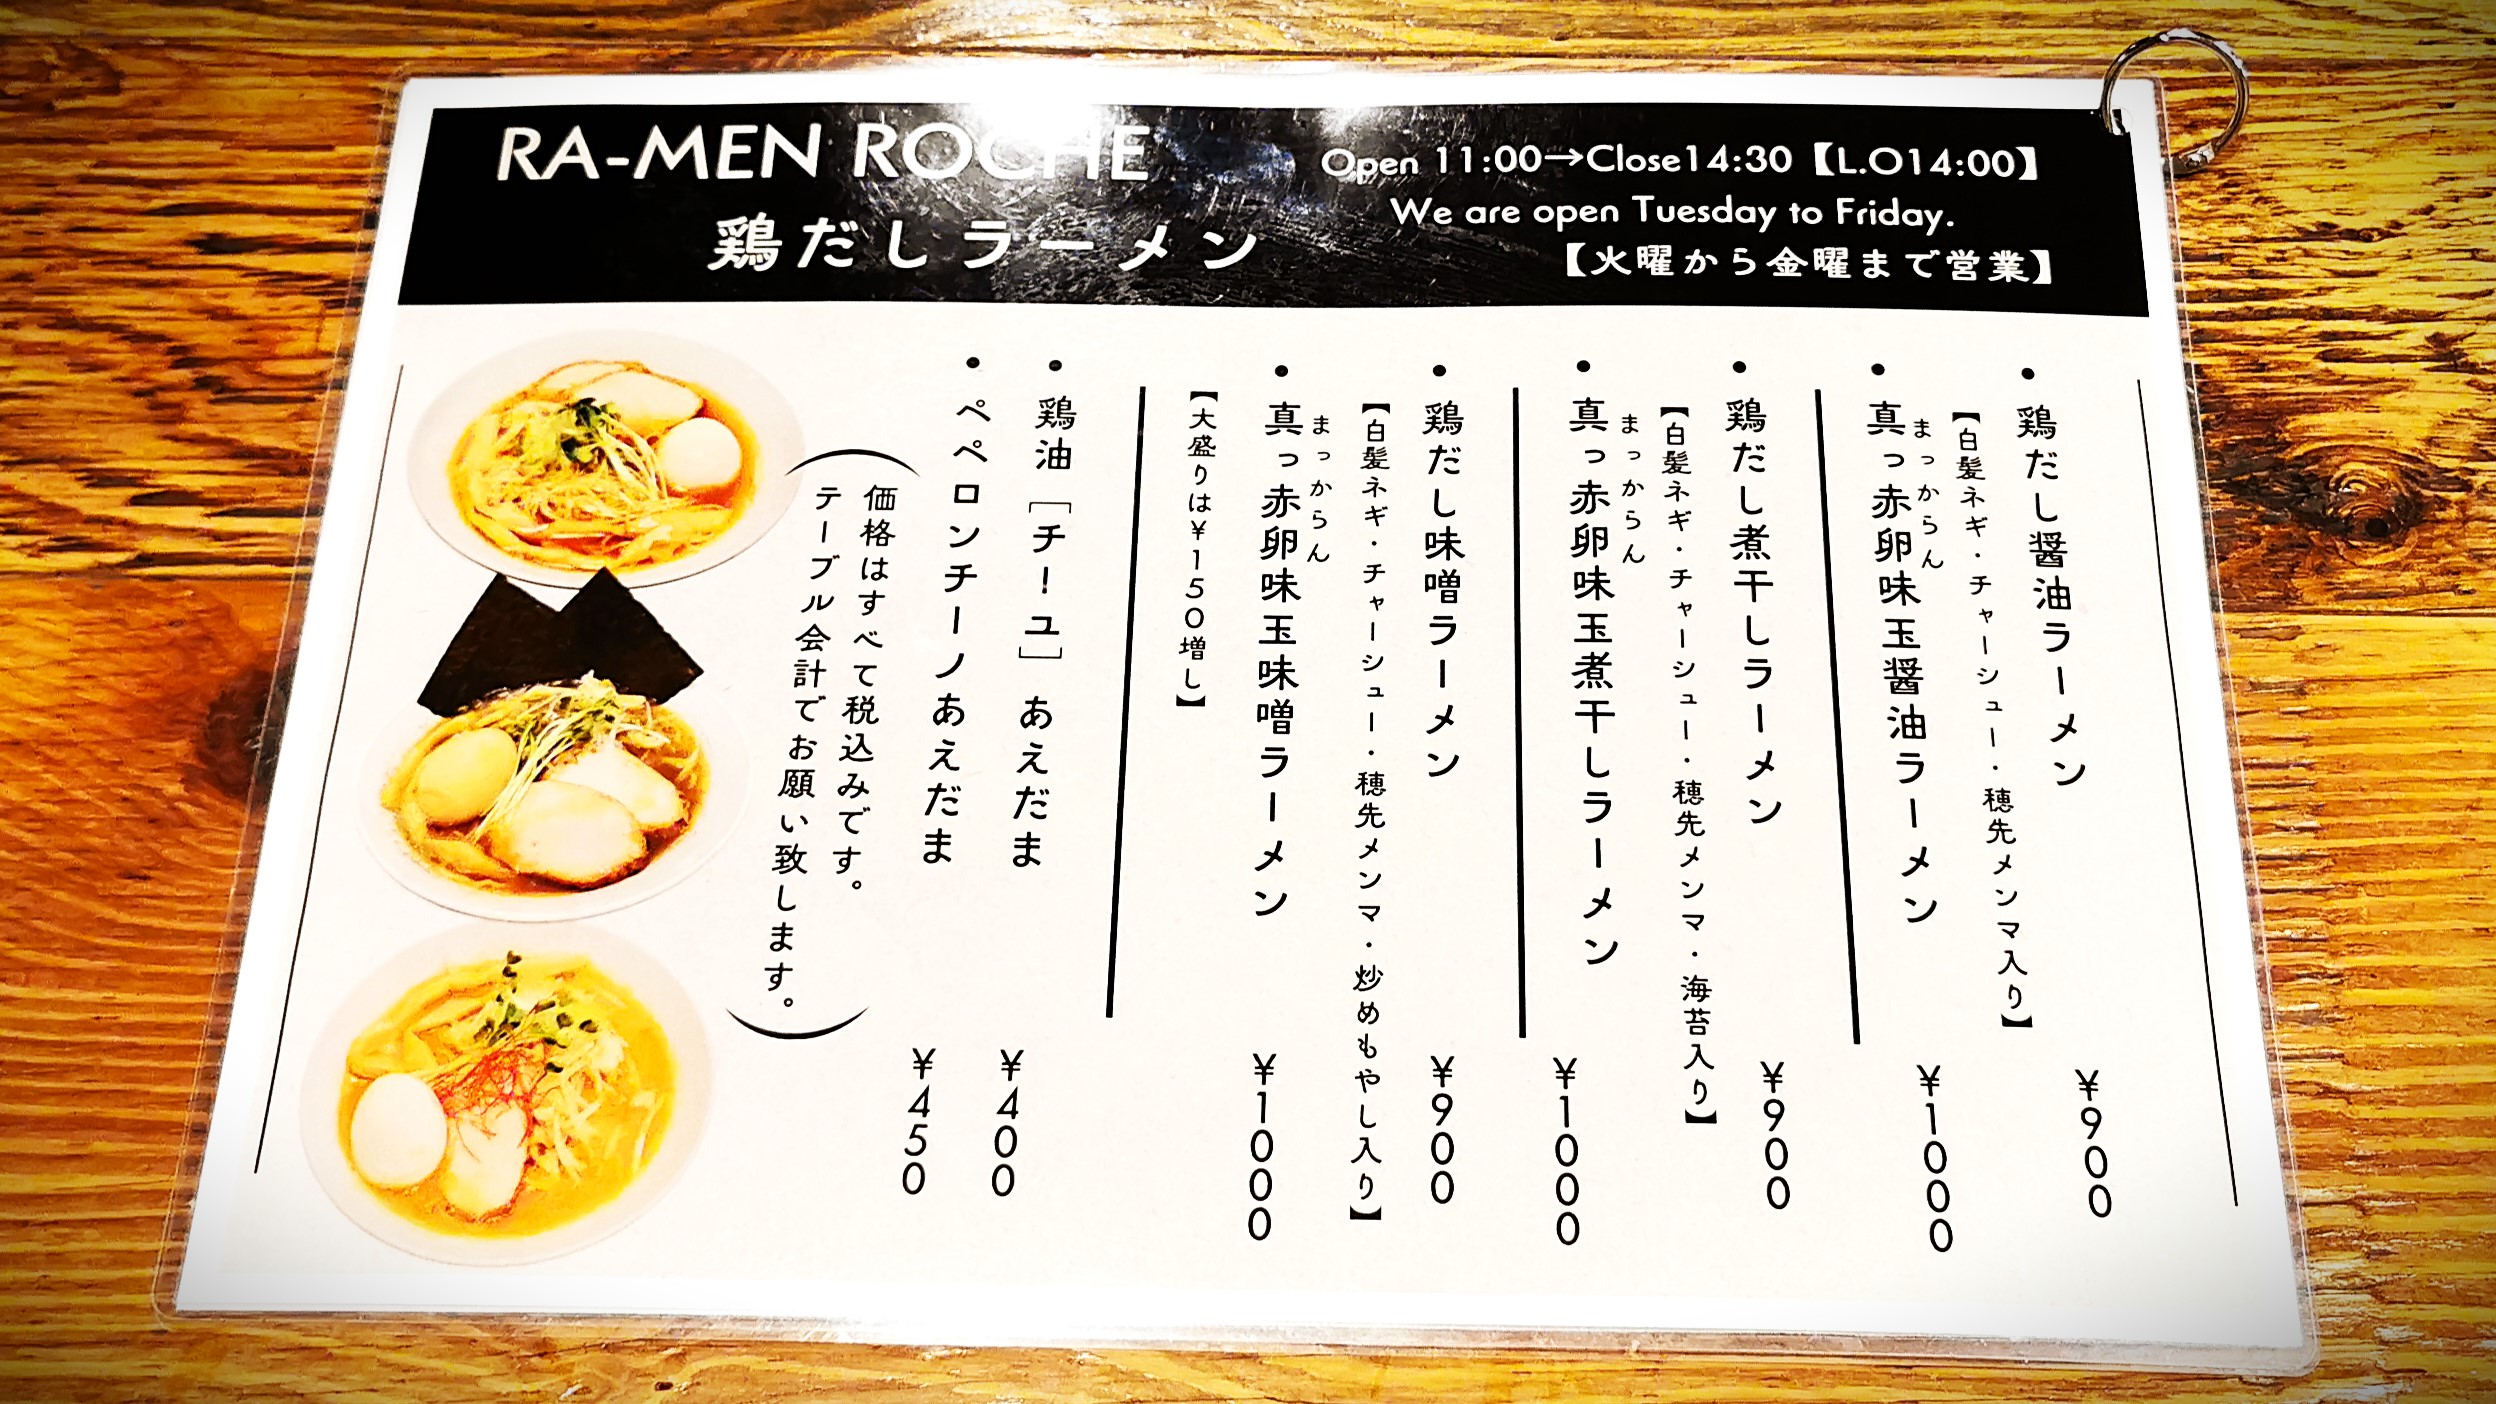 RA-MEN ROCHE
鶏だしラーメン
Open 11:00→Close14:30【L.O14:00】
We are open Tuesday to Friday.
【火曜から金曜まで営業】
・鶏だし醤油ラーメン ¥900
【白髪ネギ・チャーシュー・穂先メンマ入り】
まっからん
・真っ赤卵味玉醤油ラーメン ¥1000
・鶏だし煮干しラーメン ¥900
【白髪ネギ・チャーシュー・穂先メンマ・海苔入り】
まっからん
・真っ赤卵味玉煮干しラーメン ¥1000
・鶏だし味噌ラーメン ¥900
【白髪ネギ・チャーシュー・穂先メンマ・炒めもやし入り】
まっからん
・真っ赤卵味玉味噌ラーメン ¥1000
【大盛りは¥150増し】
・鶏油[チーユ]あえだま ¥400
・ペペロンチーノあえだま ¥450
(価格はすべて税込みです。
テーブル会計でお願い致します。)